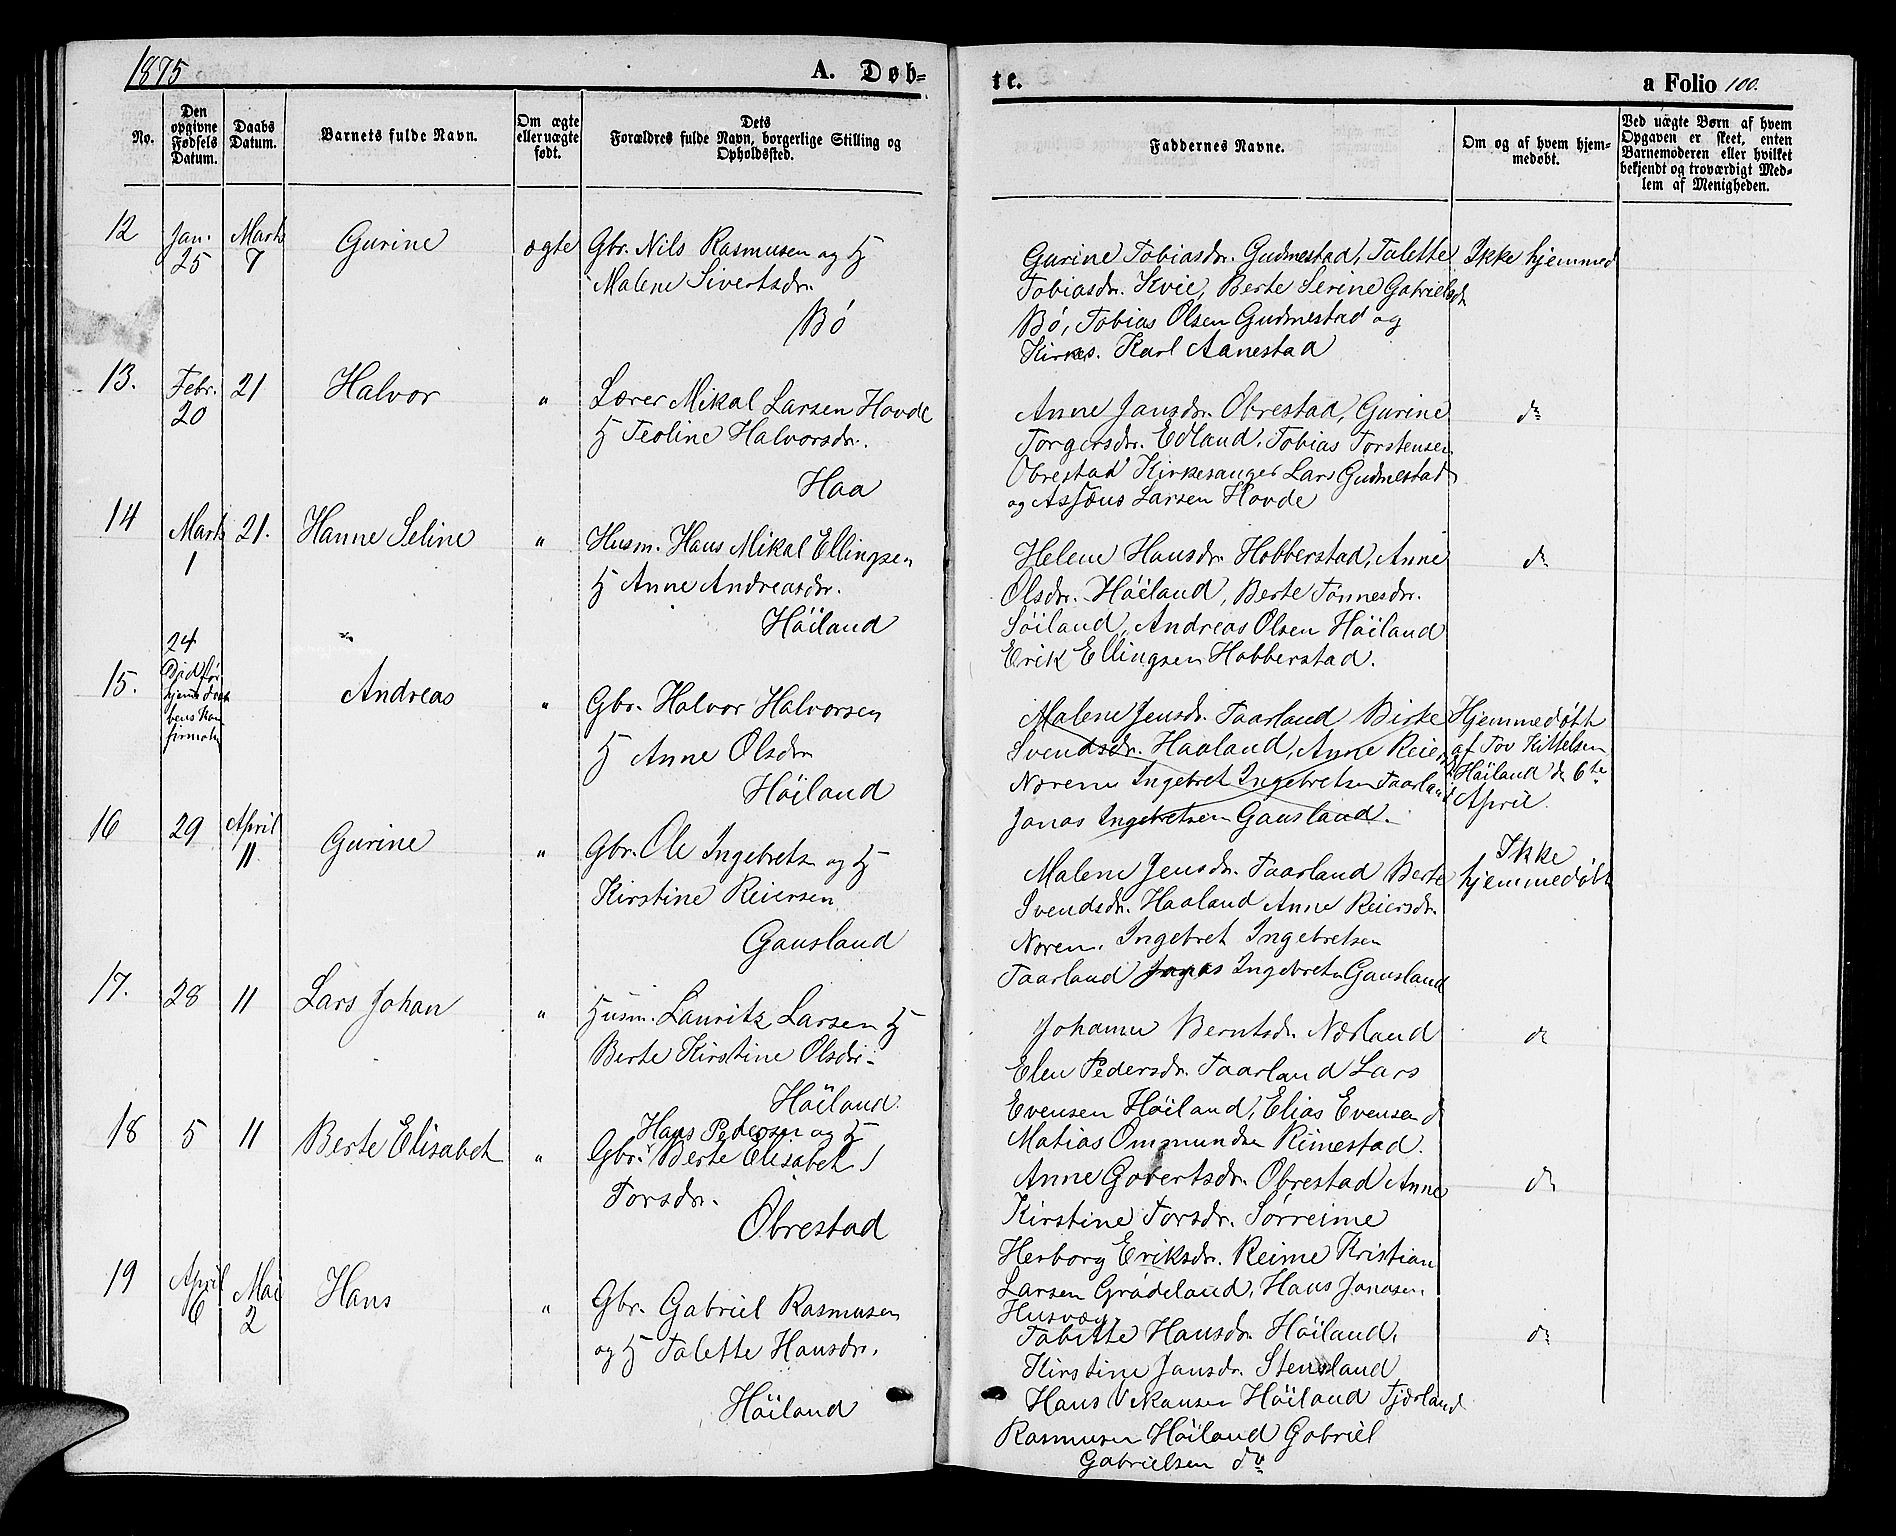 1875
A. Døb-
te.
a Folio 100.
No.
Den opgivne Fødsels Datum.
Daabs Datum.
Barnets fulde Navn.
Om ægte eller uægte født.
Dets Forældres fulde Navn, borgerlige Stilling og Opholdssted.
Faddernes Navne.
Om og af hvem hjem-
medøbt.
Ved uægte Børn af hvem
Opgaven er skeet, enten
Barnemoderen eller hvilket
bekjendt og troværdigt Med-
lem af Menigheden.
12 Jan. 25 Marts 7 Gurine ægte Gbr. Nils Rasmusen og H
Malene Sivertsdr.
Bø
Gurine Tobiasdr. Gudmestad, Talette
Tobiasdr. Kvie, Berte Serine Gabrielsdr
Bø, Tobias Olsen Gudmestad og
Kirkes. Karl Aanestad
Ikke hjemmed
13. Febr. 20 21 Halvor " Lærer Mikal Larsen Hovde
H Teoline Halvorsdr.
Haa
Anne Jansdr. Obrestad, Gurine
Torgersdr. Edland, Tobias Torstensen
Obrestad Kirkesanger Lars Gudmestad
og Assæus Larsen Hovde
do
14 Marts 1 21. Hanne Seline " Husm. Hans Mikal Ellingsen
H Anne Andreasdr.
Höiland
Helene Hansdr. Hobberstad, Anne
Olsdr. Höiland, Berte Tønnesdr.
Söiland, Andreas Olsen Höiland
Erik Ellingsen Hobberstad.
do
15. 24
Andreas " Gbr. Halvor Halvorsen
H Anne Olsdr
Höiland
Malene Jensdr. Taarland Birke
Svendsdr. Haaland, Anne Reiersd
Noren Ingebret Ingebretsen Taarland
Jonas Ingebretsen Gausland.
Hjemmedøbt
af Tov Kittelsen
Höiland d. 6te
April.
16 29 April 11 Gurine " Gbr. Ole Ingebretsn og H
Kirstine Reiersen
Gausland
Malene Jensdr. Taarland Berte
Svendsdr. Haaland Anne Reiersdr.
Noren. Ingebret Ingebretsen
Taarland Jonas Ingebretn Gausland
Ikke
hjemmedøbt
17. 28 11 Lars Johan " Husm. Lauritz Larsen H
Berte Kirstine Olsdr.
Höiland.
Johanne Berntsdr. Nærland
Elen Pedersdr. Taarland Lars
Evensen Höiland, Elias Evensen d
Matias Ommundsen Rimestad.
do
18 5 11 Berte Elisabet " Hans Pedersen og H
Gbr. Berte Elisabet
Torsdr.
Obrestad
Anne Govertsdr. Obrestad Anne
Kirstine Torsdr. Sørreime
Herborg Eriksdr. Reime Kristian
Larsen Grødeland, Hans Jonasen
Husvæg.
do
19 April 6 Mai 2 Hans " Gbr. Gabriel Rasmusen
og H Talette Hansdr.
Höiland
Tabitte Hansdr. Höiland,
Kirstine Jansdr. Stensland
Hans Hansen Höiland Tjærland
Rasmusen Höiland Gabriel
Gabrielsen do
do